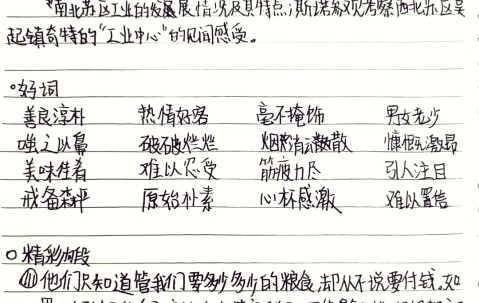 南北苏区工业的发展情况及其特点；斯诺参观考察西北苏区吴
起镇奇特的“工业中心”的见闻感受。
好词
善良淳朴 热情好客 毫不掩饰 男女老少
嗤之以鼻 破破烂烂 烟消云散 慷慨激昂
美味佳肴 难以忍受 筋疲力尽 引人注目
戒备森严 原始朴素 心怀感激 难以置信
精彩片段
① 他们只知道管我们要多少多少的粮食,却从不说要付钱,如